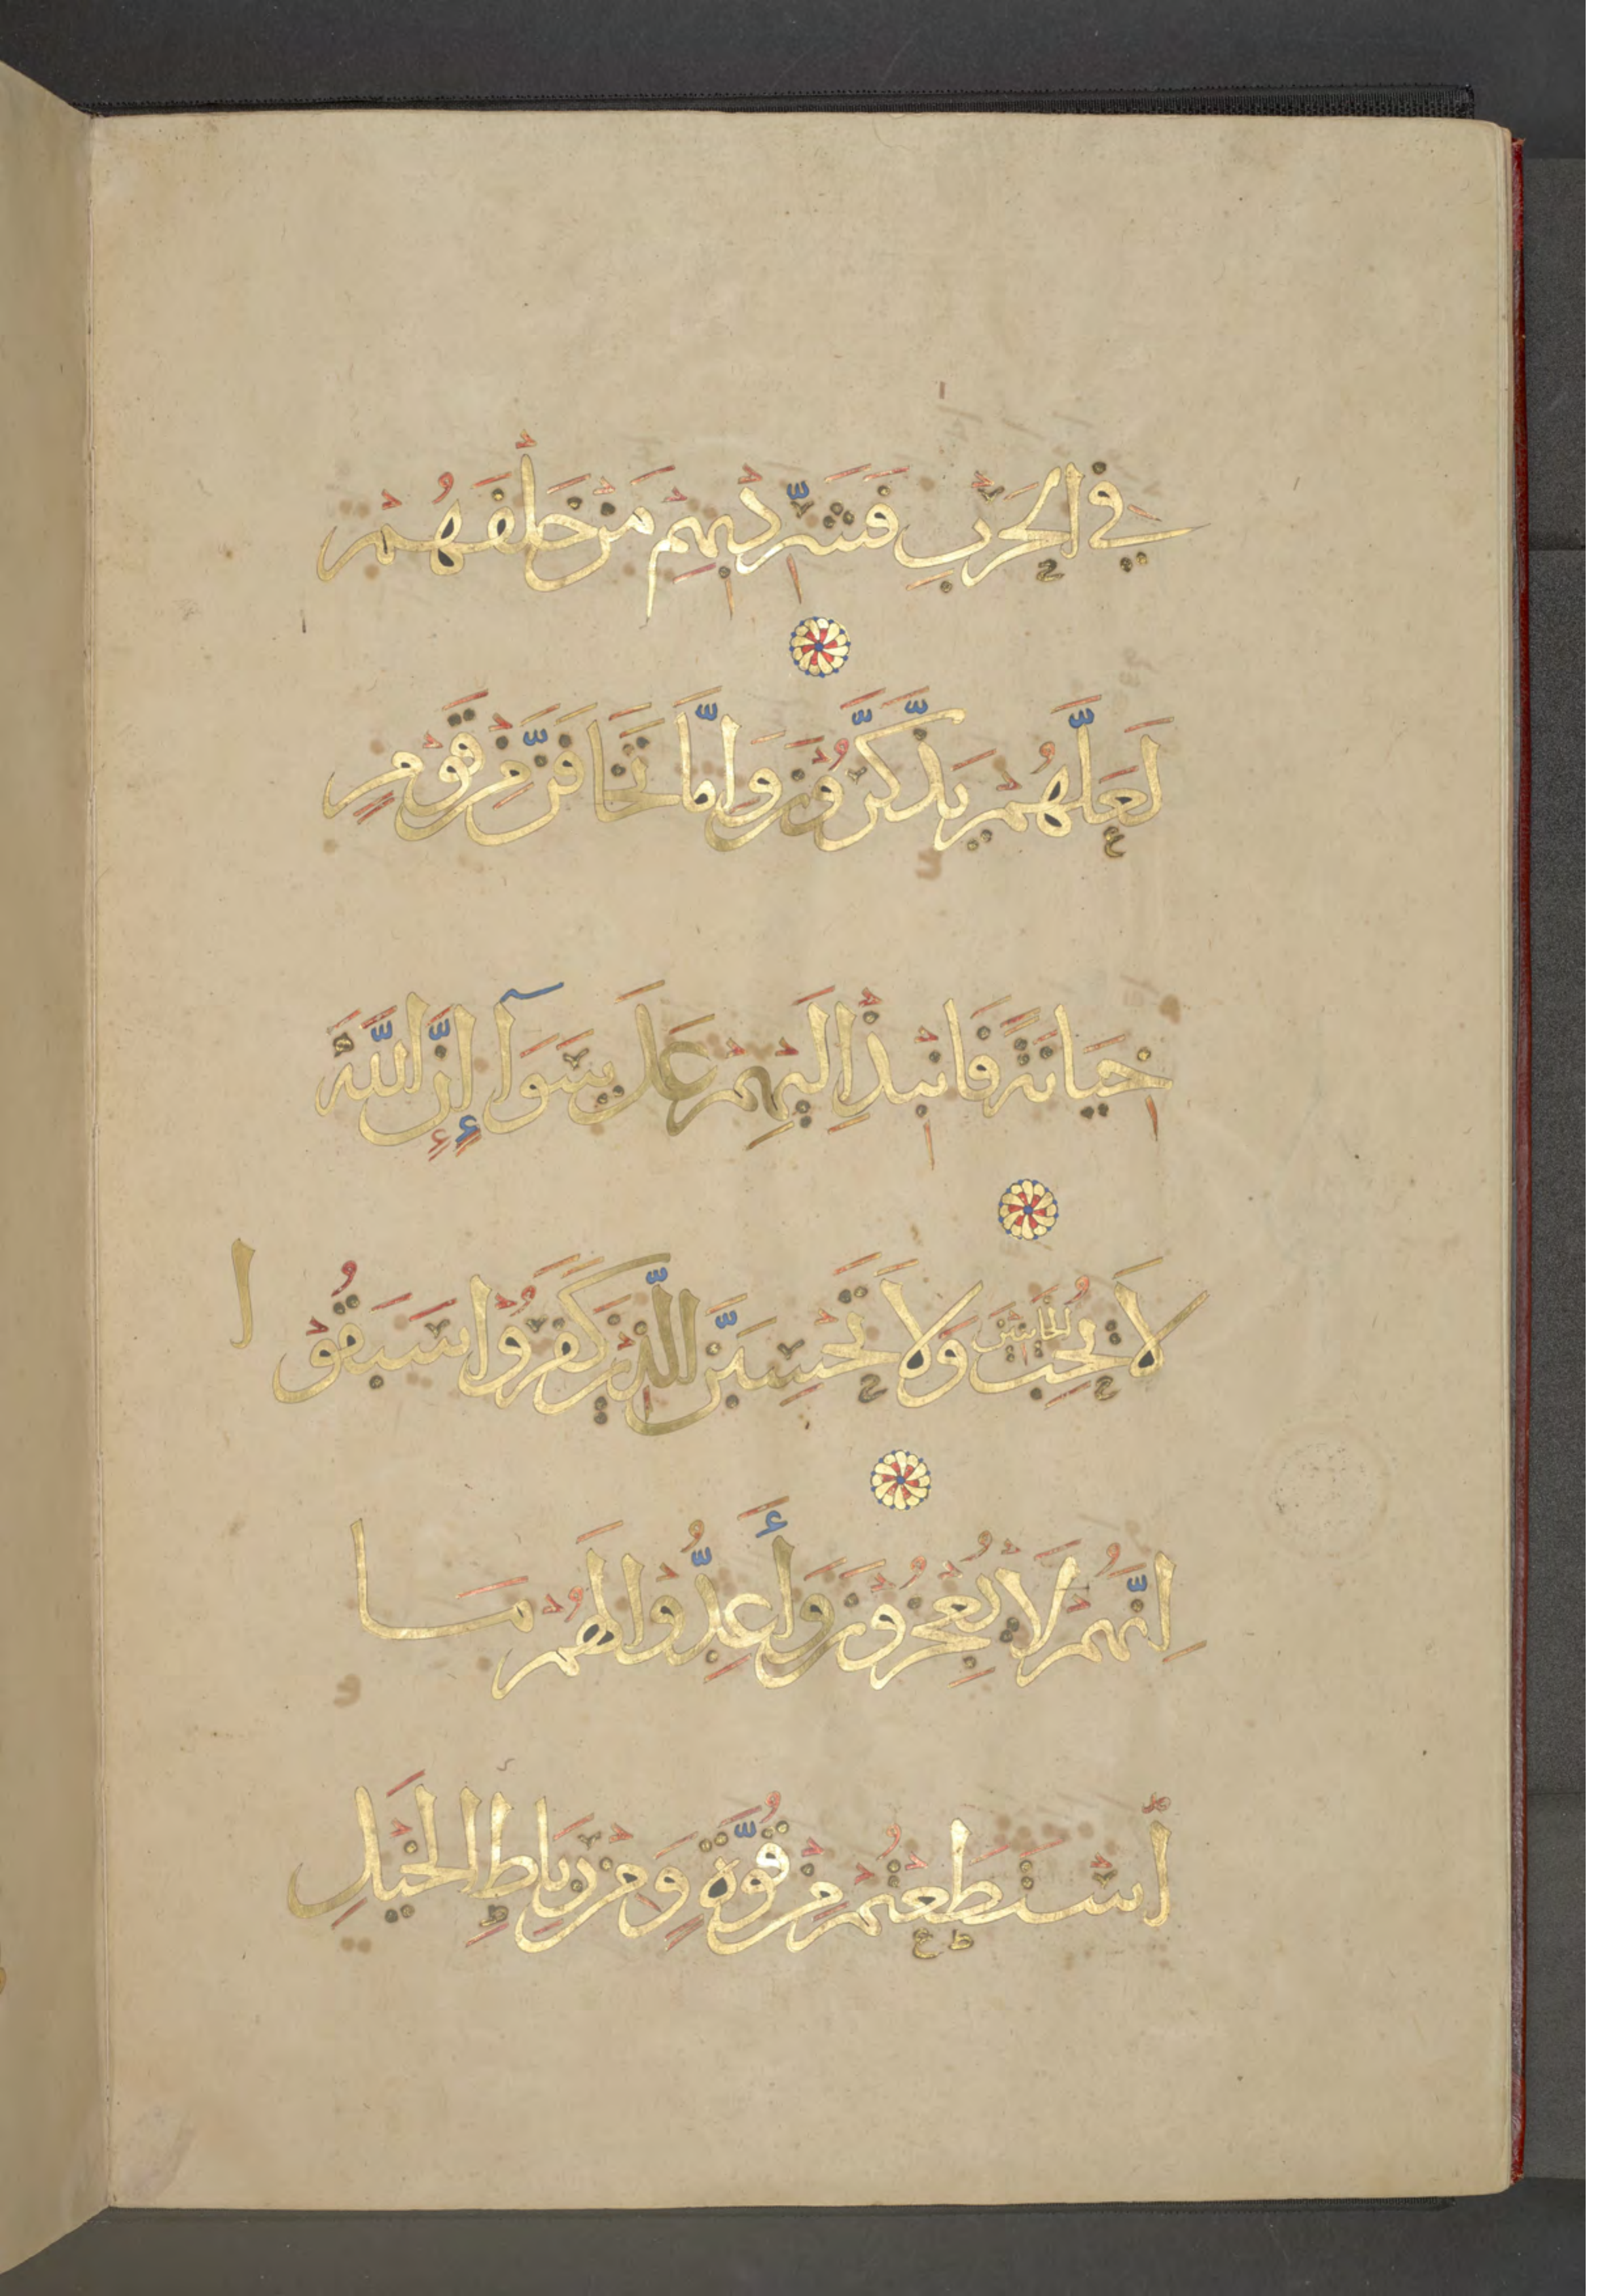 فِي الْحَرْبِ فَشَرِّدْ بِهِمْ مَنْ خَلْفَهُمْ
لَعَلَّهُمْ يَذَّكَّرُونَ وَاِمَّا تَخَافَنَّ مِنْ قَوْمٍ
خِيَانَةً فَانْبِذْ اِلَيْهِمْ عَلَى سَوَآءٍ إِنَّ اللَّهَ
لَا يُحِبُّ الْخَائِنِينَ وَلَا تَحْسِبَنَّ الَّذِينَ كَفَرُوا سَبَقُوا
اِنَّهُمْ لَا يُعْجِزُونَ وَأَعِدُّوا لَهُمْ مَا
اسْتَطَعْتُمْ مِنْ قُوَّةٍ وَمِنْ رِبَاطِ الْخَيْلِ